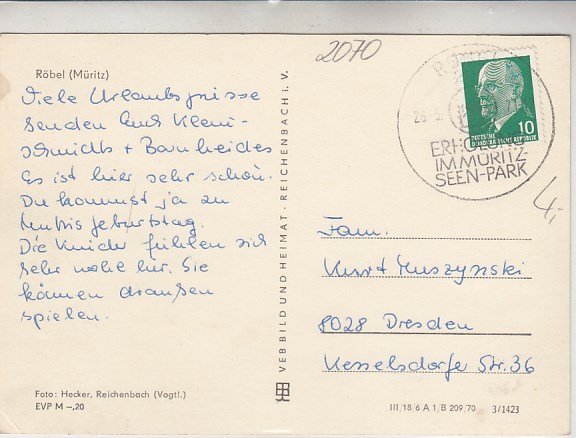 2070
Röbel (Müritz)
Viele Urlaubsgrüsse
senden Euch Klein-
schmidts + Barnheides
Es ist hier sehr schön.
Du kommst ja zu
Geburtstag.
Die Kinder fühlen sich
sehr wohl hier. Sie
können draußen
spielen.
Foto: Hecker, Reichenbach (Vogtl.)
EVP M –,20
VEB BILD UND HEIMAT · REICHENBACH i. V.
10
DEUTSCHE
DEMOKRATISCHE REPUBLIK
ERHOLUNG
IM MÜRITZ-
SEEN-PARK
4,-
Fam.
Kurt Muszynski
8028 Dresden
Kesselsdorfer Str. 36
III/18/6 A 1/B 209/70 3/1423